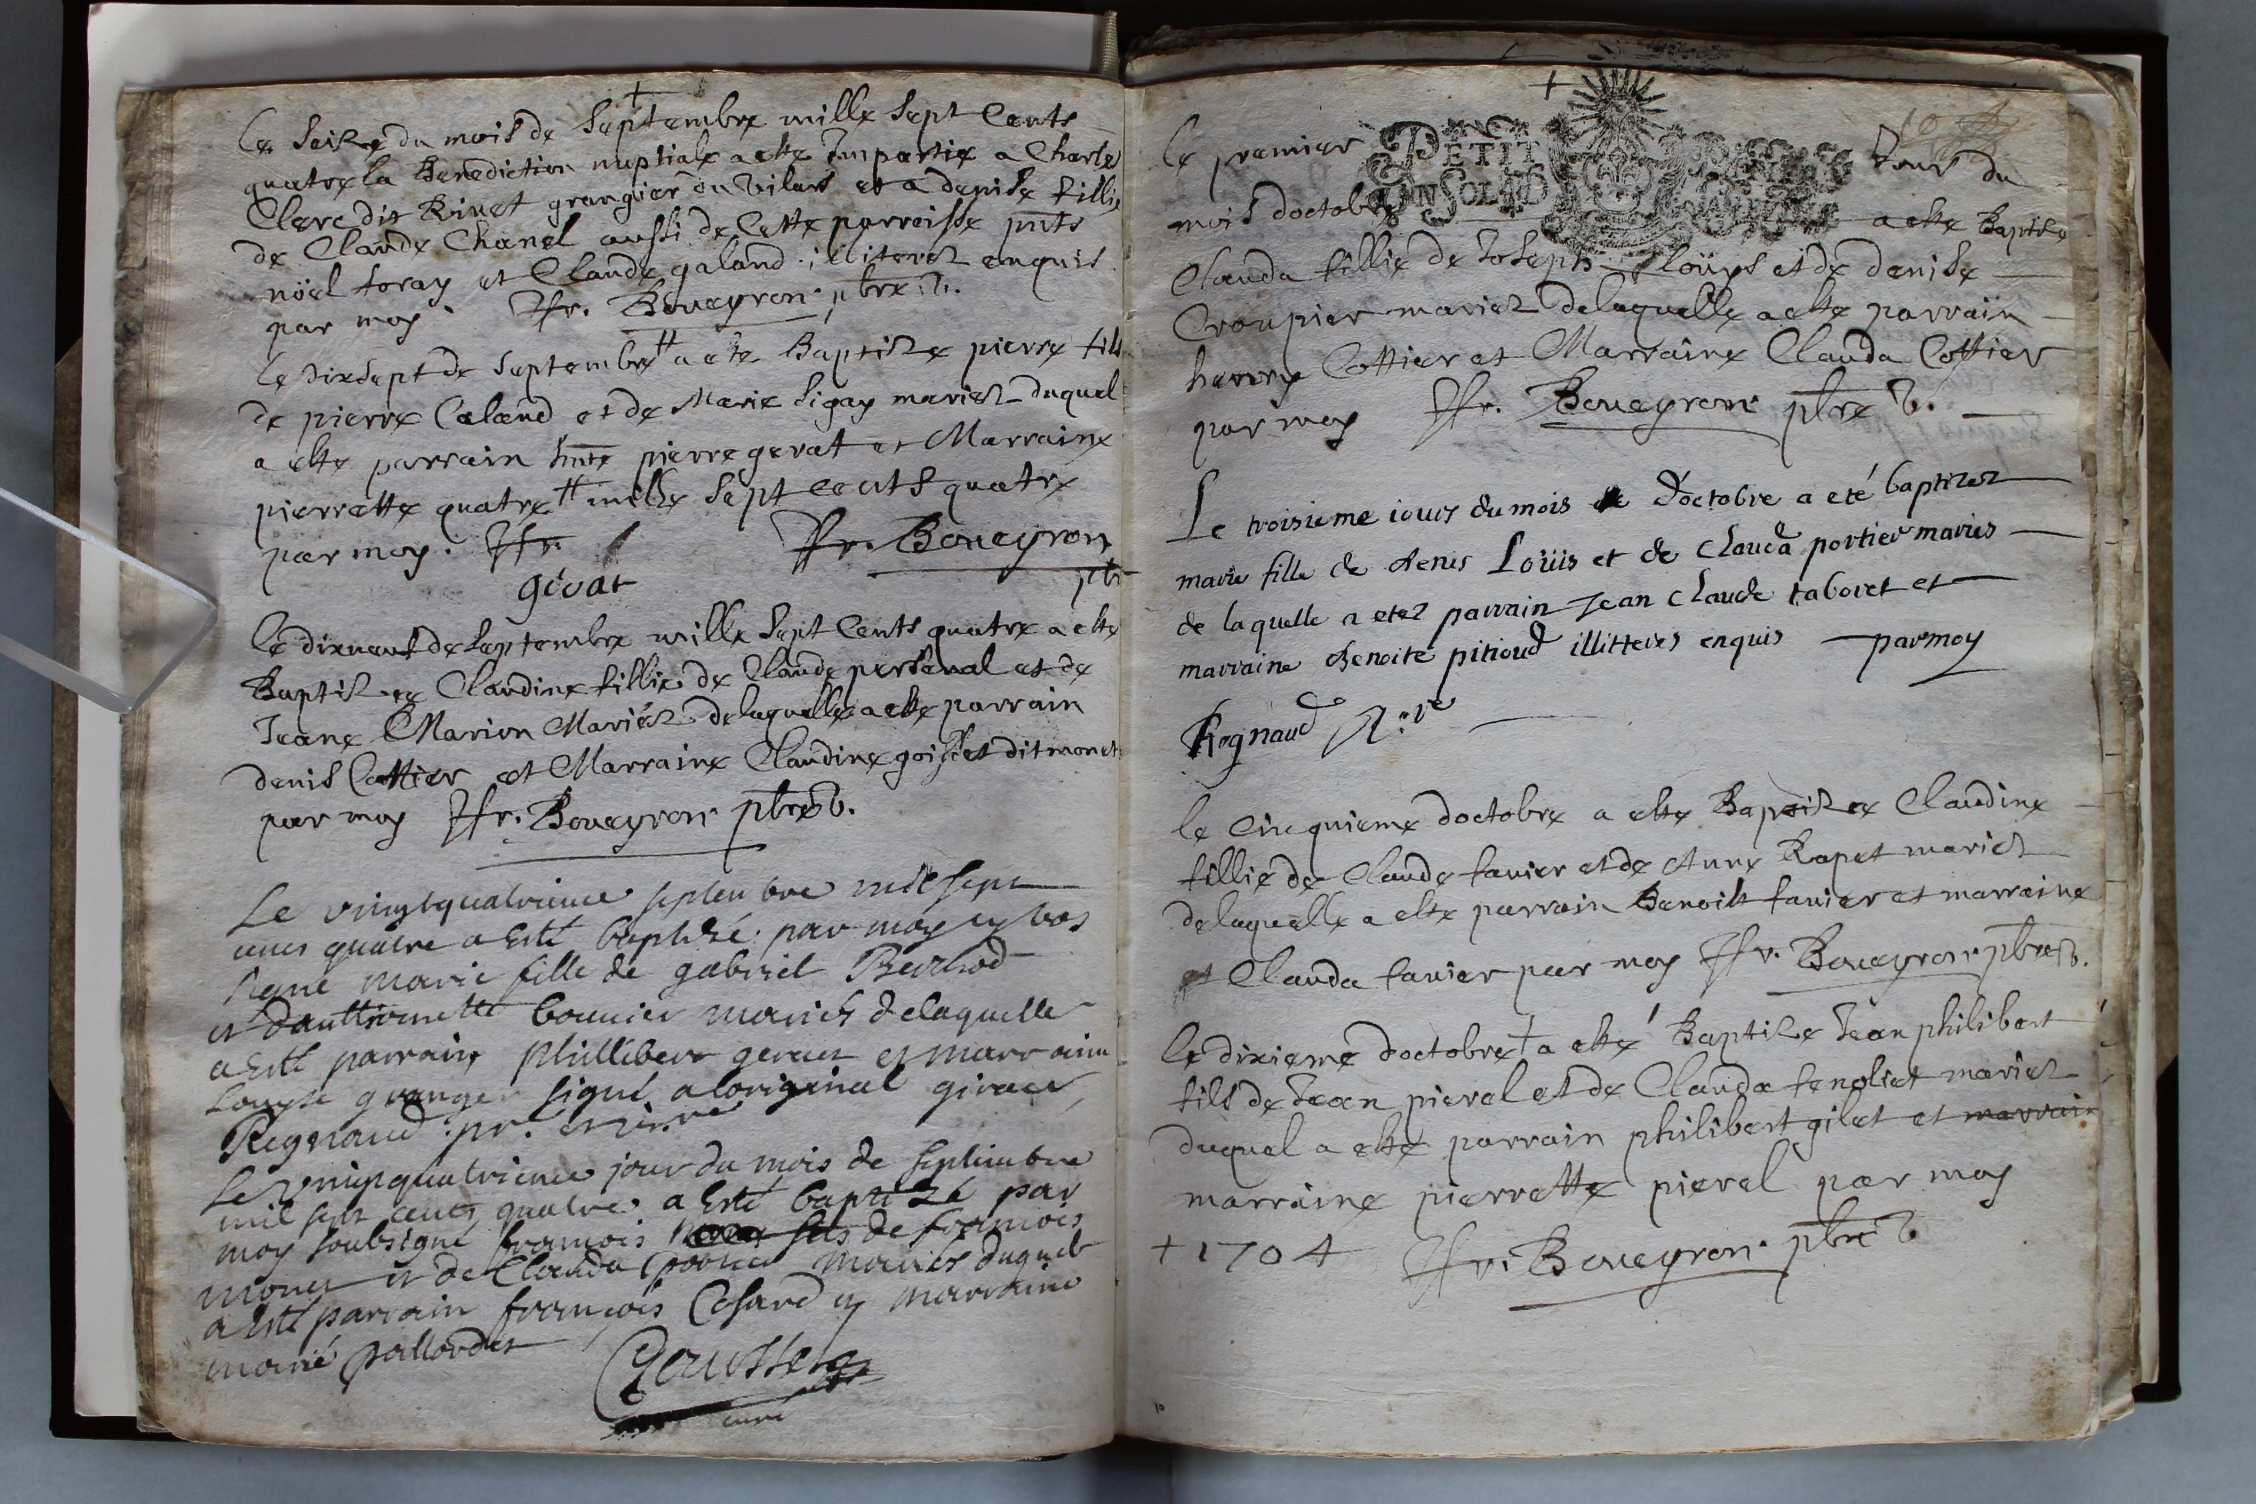 +
Le Seize du mois de Septembre mille Sept Cents
quatre la Benediction nuptiale a este Impartie a Charle
Clerc dit Rivet grangier du vilard et a denise fillie
de Claude Chanel aussi de Cette parroisse pnts
nöel foray et Claude galand illiterez enquis
par moy Ffr. Boueyron pbre
Le dixsept de Septembre a ete Baptize pierre fils
de pierre Caland et de Marie Sigay mariez duquel
a este parrain pierre gerat et Marraine
pierrette quatre mille Sept cents quatre
par moy. Ffr. Ffr. Boueyron
givat pbr
Le dixneuf de Septembre mille Sept Cents quatre a este
Baptizee Claudine fillie de Claude perseval et de
Jeane Marion Mariez delaquelle a este parrain
denis Cottier et Marraine Claudine dit monet
par moy Ffr. Boueyron pbre
Le vingtquatrieme septembre mil sept
cens quatre a Esté baptizé par moy
signé marie fille de gabriel Berthod
et dantthoinette bouvier mariés delaquelle
a Esté parrain phillibert et marraine
Louyse granger signé a loriginal
Regnaud
Le vingtquatrieme jour du mois de septembre
mil sept cens quatre a Esté baptizé par
moy soubsigné francois fils de francois
monet et de Clauda mariés duquel
a esté parrain francois Cesard et marraine
marié pallordet
curé
+
Le premier PETIT IN SOLD Jour du
mois doctobre a este Baptisee
Clauda fillie de Joseph Loüys et de denise
Croupier mariez delaquelle a este parrain
henry Cottier et Marraine Clauda Cottier
par moy Ffr. Boueyron pbre
Le troisieme iours du mois d'octobre a eté baptizez
marie fille de denis Loüis et de Clauda portier maries
de laquelle a etez parrain Jean Claude taboret et
marraine Benoite pitioud illitteres enquis par moy
Regnaud
le Cincquieme doctobre a este Baptizee Claudine
fillie de Claude favier et de Anne Rapet mariez
delaquelle a este parrain Benoit favier et marraine
et Clauda favier par moy Ffr. Boueyron pbre
Le dixieme doctobre + a esté Baptize Jean philibert
fils de Jean pieral et de Clauda fenoliet mariez
duquel a este parrain philibert gilet et marrain
marraine pierrette pieral par moy
+ 1704 Ffr. Boueyron pbre